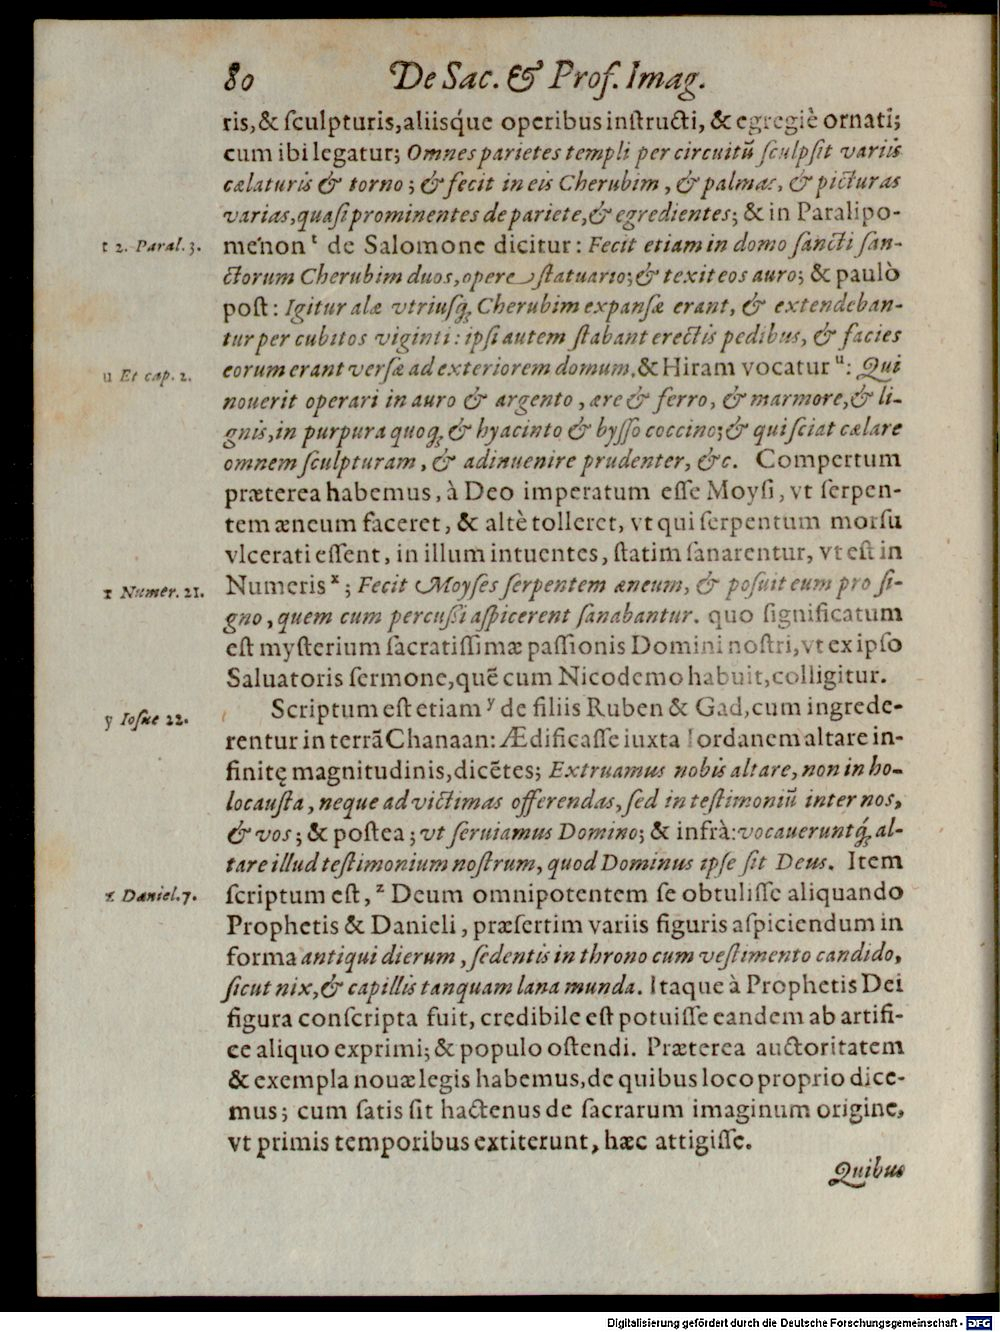 80 De Sac. & Prof. Imag.
ris, & ſculpturis, aliisq́ue operibus inſtructi, & egregiè ornati;
cum ibi legatur; Omnes parietes templi per circuitũ ſculpſit variis
cælaturis & torno; & fecit in eis Cherubim, & palmas, & picturas
varias, quaſi prominentes de pariete, & egredientes; & in Paralipo-
t 2. Paral. 3.
ménon ᵗ de Salomone dicitur: Fecit etiam in domo ſancti ſan-
ctorum Cherubim duos, opere ſtatuario; & texit eos auro; & paulò
poſt: Igitur alæ vtriuſq; Cherubim expanſæ erant, & extendeban-
tur per cubitos viginti: ipſi autem ſtabant erectis pedibus, & facies
u Et cap. 2.
eorum erant verſæ ad exteriorem domum. & Hiram vocatur ᵘ: Qui
nouerit operari in auro & argento, ære & ferro, & marmore, & li-
gnis, in purpura quoq; & hyacinto & byſſo coccino; & qui ſciat cælare
omnem ſculpturam, & adinuenire prudenter, &c. Compertum
præterea habemus, à Deo imperatum eſſe Moyſi, vt ſerpen-
tem æneum faceret, & altè tolleret, vt qui ſerpentum morſu
vlcerati eſſent, in illum intuentes, ſtatim ſanarentur, vt eſt in
x Numer. 21.
Numeris ˣ; Fecit Moyſes ſerpentem æneum, & poſuit eum pro ſi-
gno, quem cum percuſſi aſpicerent ſanabantur. quo ſignificatum
eſt myſterium ſacratiſſimæ paſſionis Domini noſtri, vt ex ipſo
Saluatoris ſermone, quẽ cum Nicodemo habuit, colligitur.
y Ioſue 22.
Scriptum eſt etiam ʸ de filiis Ruben & Gad, cum ingrede-
rentur in terrã Chanaan: Ædificaſſe iuxta Iordanem altare in-
finitę magnitudinis, dicẽtes; Extruamus nobis altare, non in ho-
locauſta, neque ad victimas offerendas, ſed in teſtimoniũ inter nos,
& vos; & poſtea; vt ſeruiamus Domino; & infrà: vocaueruntq́; al-
tare illud teſtimonium noſtrum, quod Dominus ipſe ſit Deus. Item
z Daniel. 7.
ſcriptum eſt, ᶻ Deum omnipotentem ſe obtuliſſe aliquando
Prophetis & Danieli, præſertim variis figuris aſpiciendum in
forma antiqui dierum, ſedentis in throno cum veſtimento candido,
ſicut nix, & capillis tanquam lana munda. Itaque à Prophetis Dei
figura conſcripta fuit, credibile eſt potuiſſe eandem ab artifi-
ce aliquo exprimi; & populo oſtendi. Præterea auctoritatem
& exempla nouæ legis habemus, de quibus loco proprio dice-
mus; cum ſatis ſit hactenus de ſacrarum imaginum origine,
vt primis temporibus extiterunt, hæc attigiſſe.
Quibus
Digitalisierung gefördert durch die Deutsche Forschungsgemeinschaft - DFG